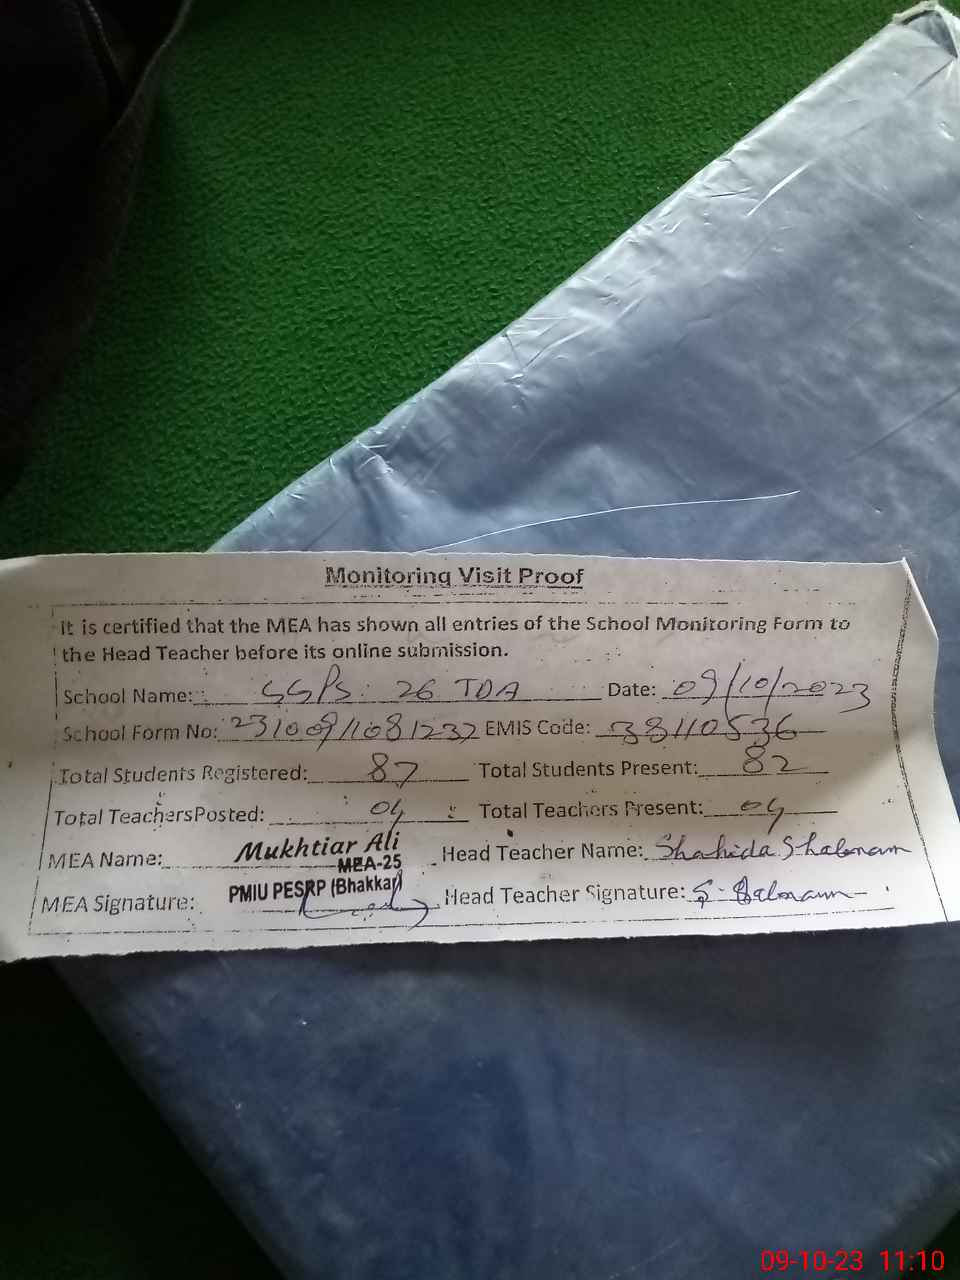 Monitoring Visit Proof
It is certified that the MEA has shown all entries of the School Monitoring Form to
the Head Teacher before its online submission.
School Name: GGPS. 26 TDA Date: 09/10/2023
School Form No: 23100911081232 EMIS Code: 38110536
Total Students Registered: 87 Total Students Present: 82
Total TeachersPosted: 04 Total Teachers Present: 04
MEA Name: Mukhtiar Ali Head Teacher Name: Shahida Shabnam
MEA-25
MEA Signature: PMIU PESRP (Bhakkar) Head Teacher Signature: S. Shabnam
09-10-23 11:10